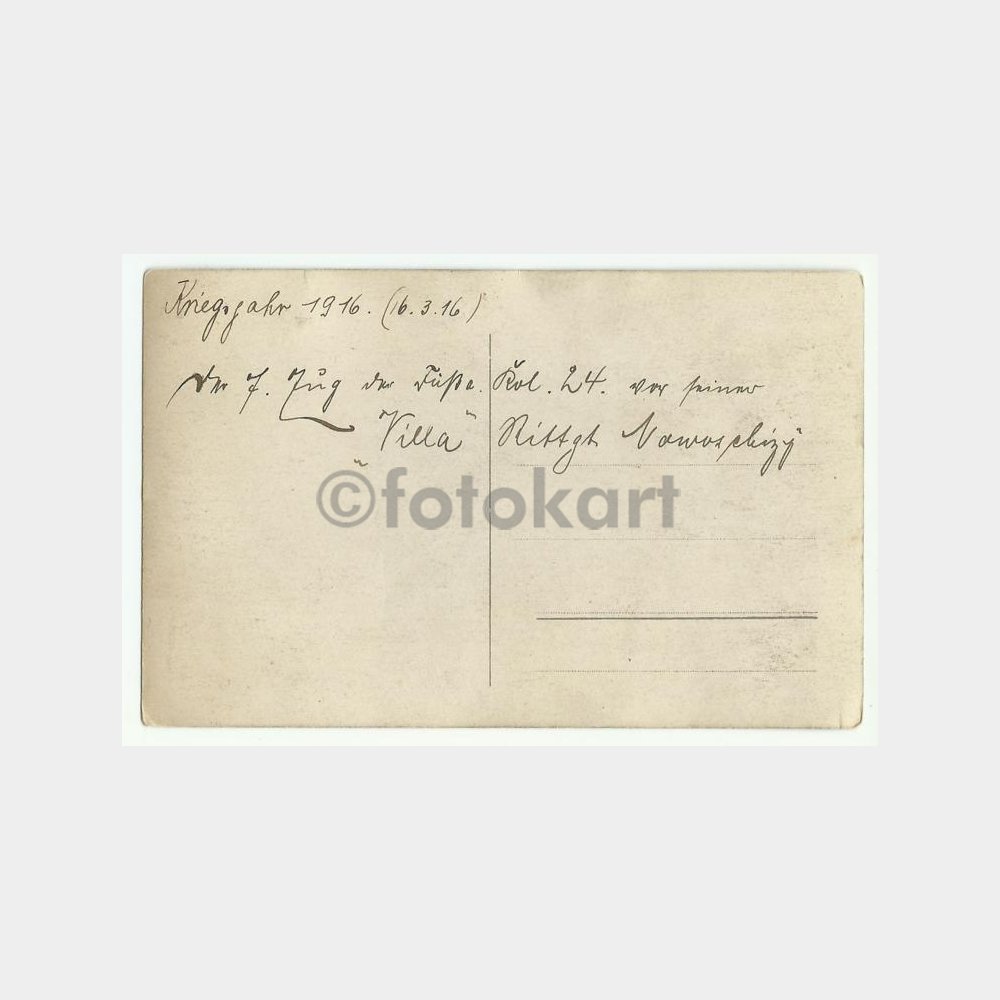 Kriegsjahr 1916. (16.3.16)
Der 7. Zug der Fußa. Kol. 24. vor seiner
„Villa“ Rittgt Nowoschizy
©fotokart